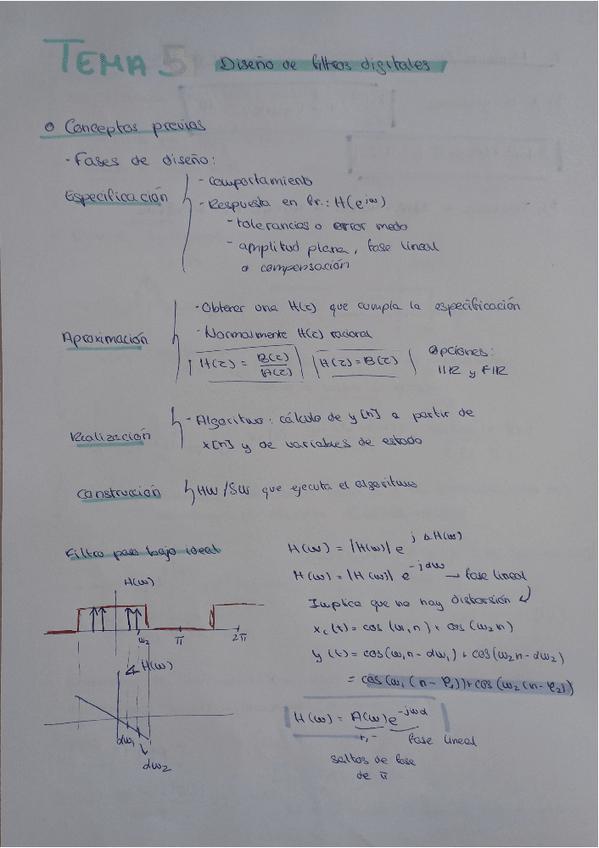 TEMA 5 Diseño de filtros digitales
Conceptos previos
- Fases de diseño:
Especificación
- comportamiento
- Respuesta en fr.: H(e^jω)
- tolerancias o error medo
- amplitud plana, fase lineal
o compensación
Aproximación
- Obtener una H(z) que cumpla la especificación
- Normalmente H(z) racional
H(z) = B(z)/A(z) H(z) = B(z) Opciones:
IIR y FIR
Realización
- Algoritmo: cálculo de y[n] a partir de
x[n] y de variables de estado
Construcción HW/SW que ejecuta el algoritmo
Filtro paso bajo ideal
H(ω)
ω2 π 2π
∡H(ω)
αω1
αω2
H(ω) = |H(ω)| e^j∡H(ω)
H(ω) = |H(ω)| e^-jαω → fase lineal
Implica que no hay distorsión
x_c(t) = cos(ω1 n) + cos(ω2 n)
y(t) = cos(ω1 n - αω1) + cos(ω2 n - αω2)
= cos(ω1(n - ρ1)) + cos(ω2(n - ρ2))
H(ω) = A(ω) e^-jωα
+, - fase lineal
saltos de fase
de π